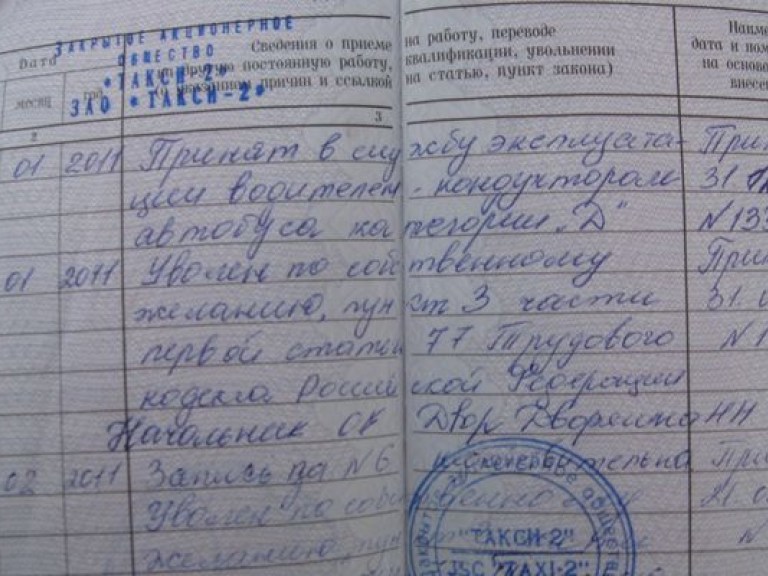 ЗАКРЫТОЕ АКЦИОНЕРНОЕ
ОБЩЕСТВО
"ТАКСИ-2"
ЗАО "ТАКСИ-2"
Дата
месяц
год
Сведения о приеме на работу, переводе
на другую постоянную работу, квалификации, увольнении
(с указанием причин и ссылкой на статью, пункт закона)
Наиме
дата и ном
на осно
внесе
2
3
01 2011 Принят в службу эксплуата- При
ции водителем - кондуктором 31
автобуса категории "Д" N 133
01 2011 Уволен по собственному При
желанию, пункт 3 части 31.
первой статьи 77 Трудового N 1
кодекса Российской Федерации
Начальник ОК Двор Дворкина НН
02 2011 Запись за N 6 При
Уволен по собственному 21.
желанию, пункт N
"ТАКСИ-2"
JSC "TAXI-2"